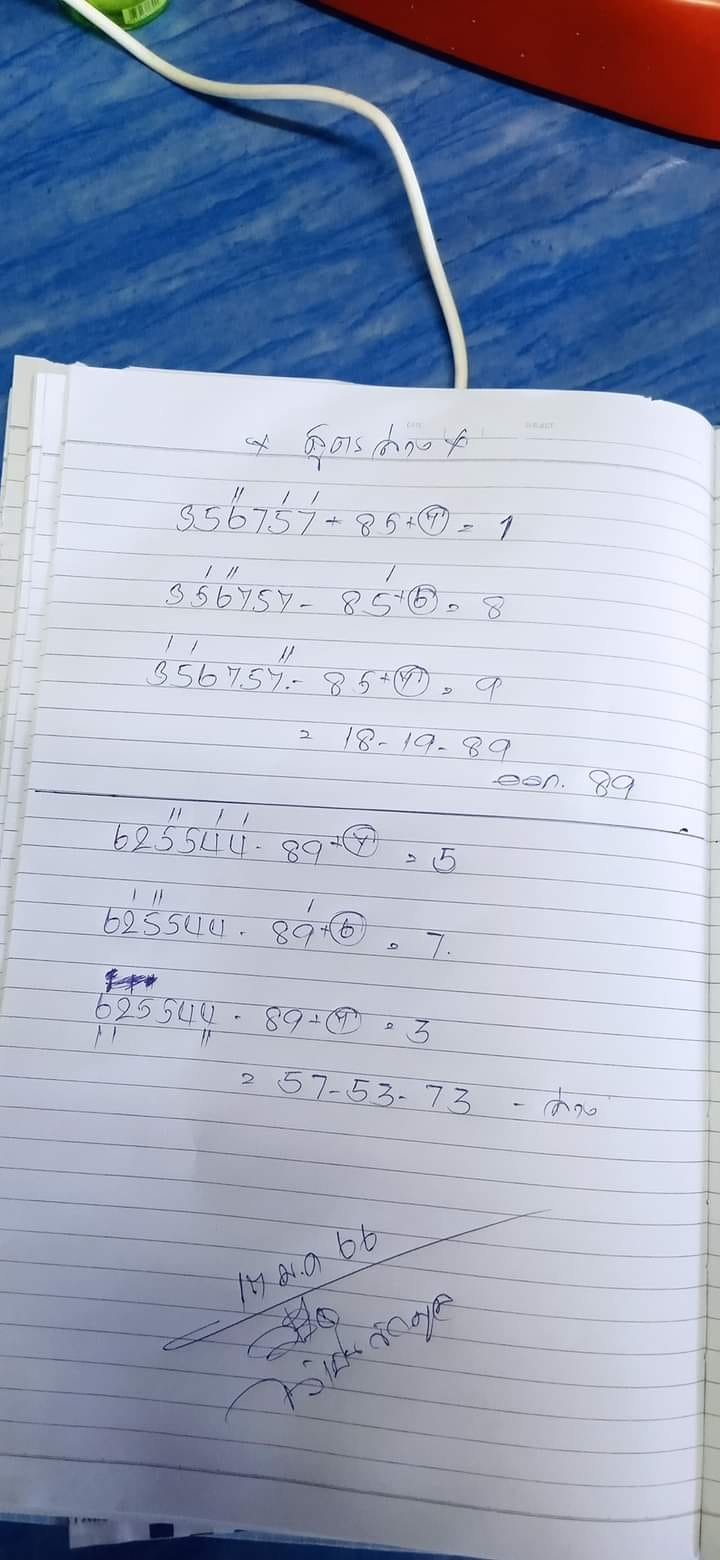 * สูตรล่าง *
356757 - 85 + 4 = 1
356757 - 85 + 6 = 8
356757 - 85 + 4 = 9
= 18 - 19 - 89
ออก. 89
625544 - 89 + 4 = 5
625544 - 89 + 6 = 7.
625544 - 89 + 4 = 3
= 57 - 53 - 73 - ล่าง
17 ม.ค 66